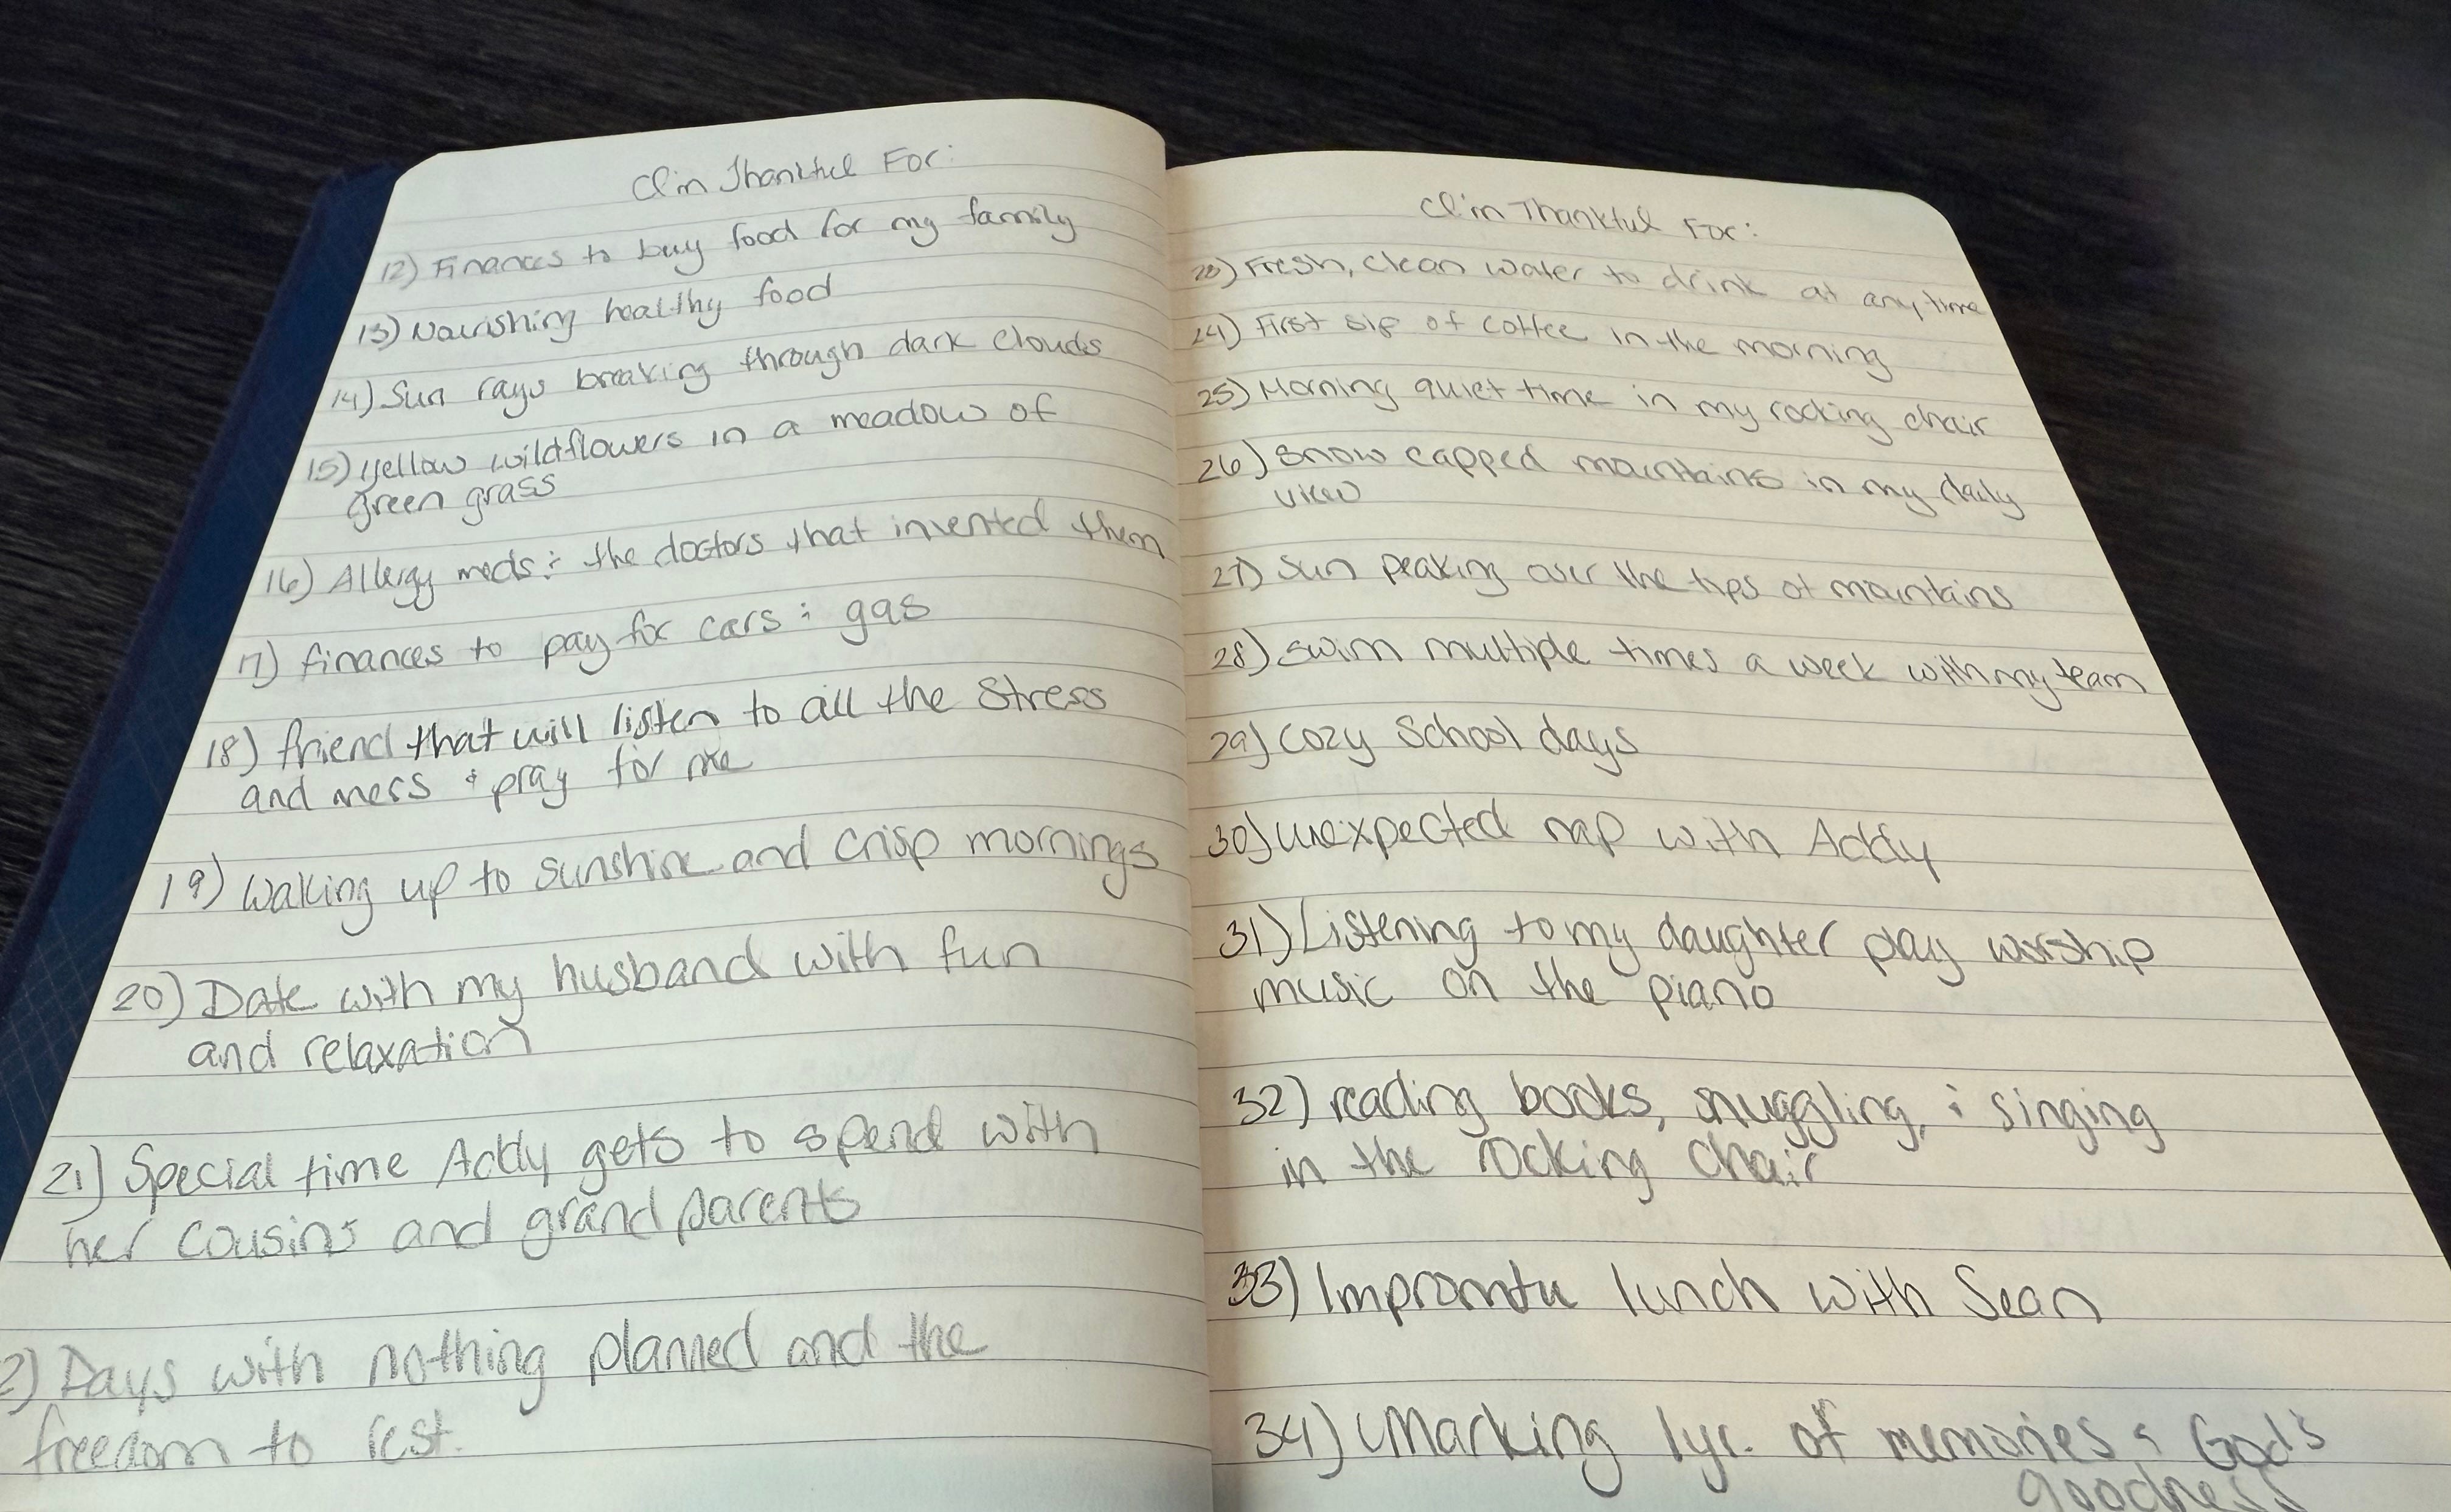 I'm Thankful For:
12) Finances to buy food for my family
13) Nourishing healthy food
14) Sun rays breaking through dark clouds
15) Yellow wildflowers in a meadow of
green grass
16) Allergy meds & the doctors that invented them
17) finances to pay for cars & gas
18) friend that will listen to all the stress
and mess & pray for me
19) Waking up to sunshine and crisp mornings
20) Date with my husband with fun
and relaxation
21) Special time Addy gets to spend with
her cousins and grandparents
2) Days with nothing planned and the
freedom to rest.
I'm Thankful For:
23) Fresh, clean water to drink at anytime
24) First sip of coffee in the morning
25) Morning quiet time in my rocking chair
26) Snow capped mountains in my daily
view
27) Sun peaking over the tips of mountains
28) Swim multiple times a week with my team
29) Cozy School days
30) unexpected nap with Addy
31) Listening to my daughter play worship
music on the piano
32) reading books, snuggling, & singing
in the rocking chair
33) Impromtu lunch with Sean
34) Marking 1yr. of memories & God's
goodness